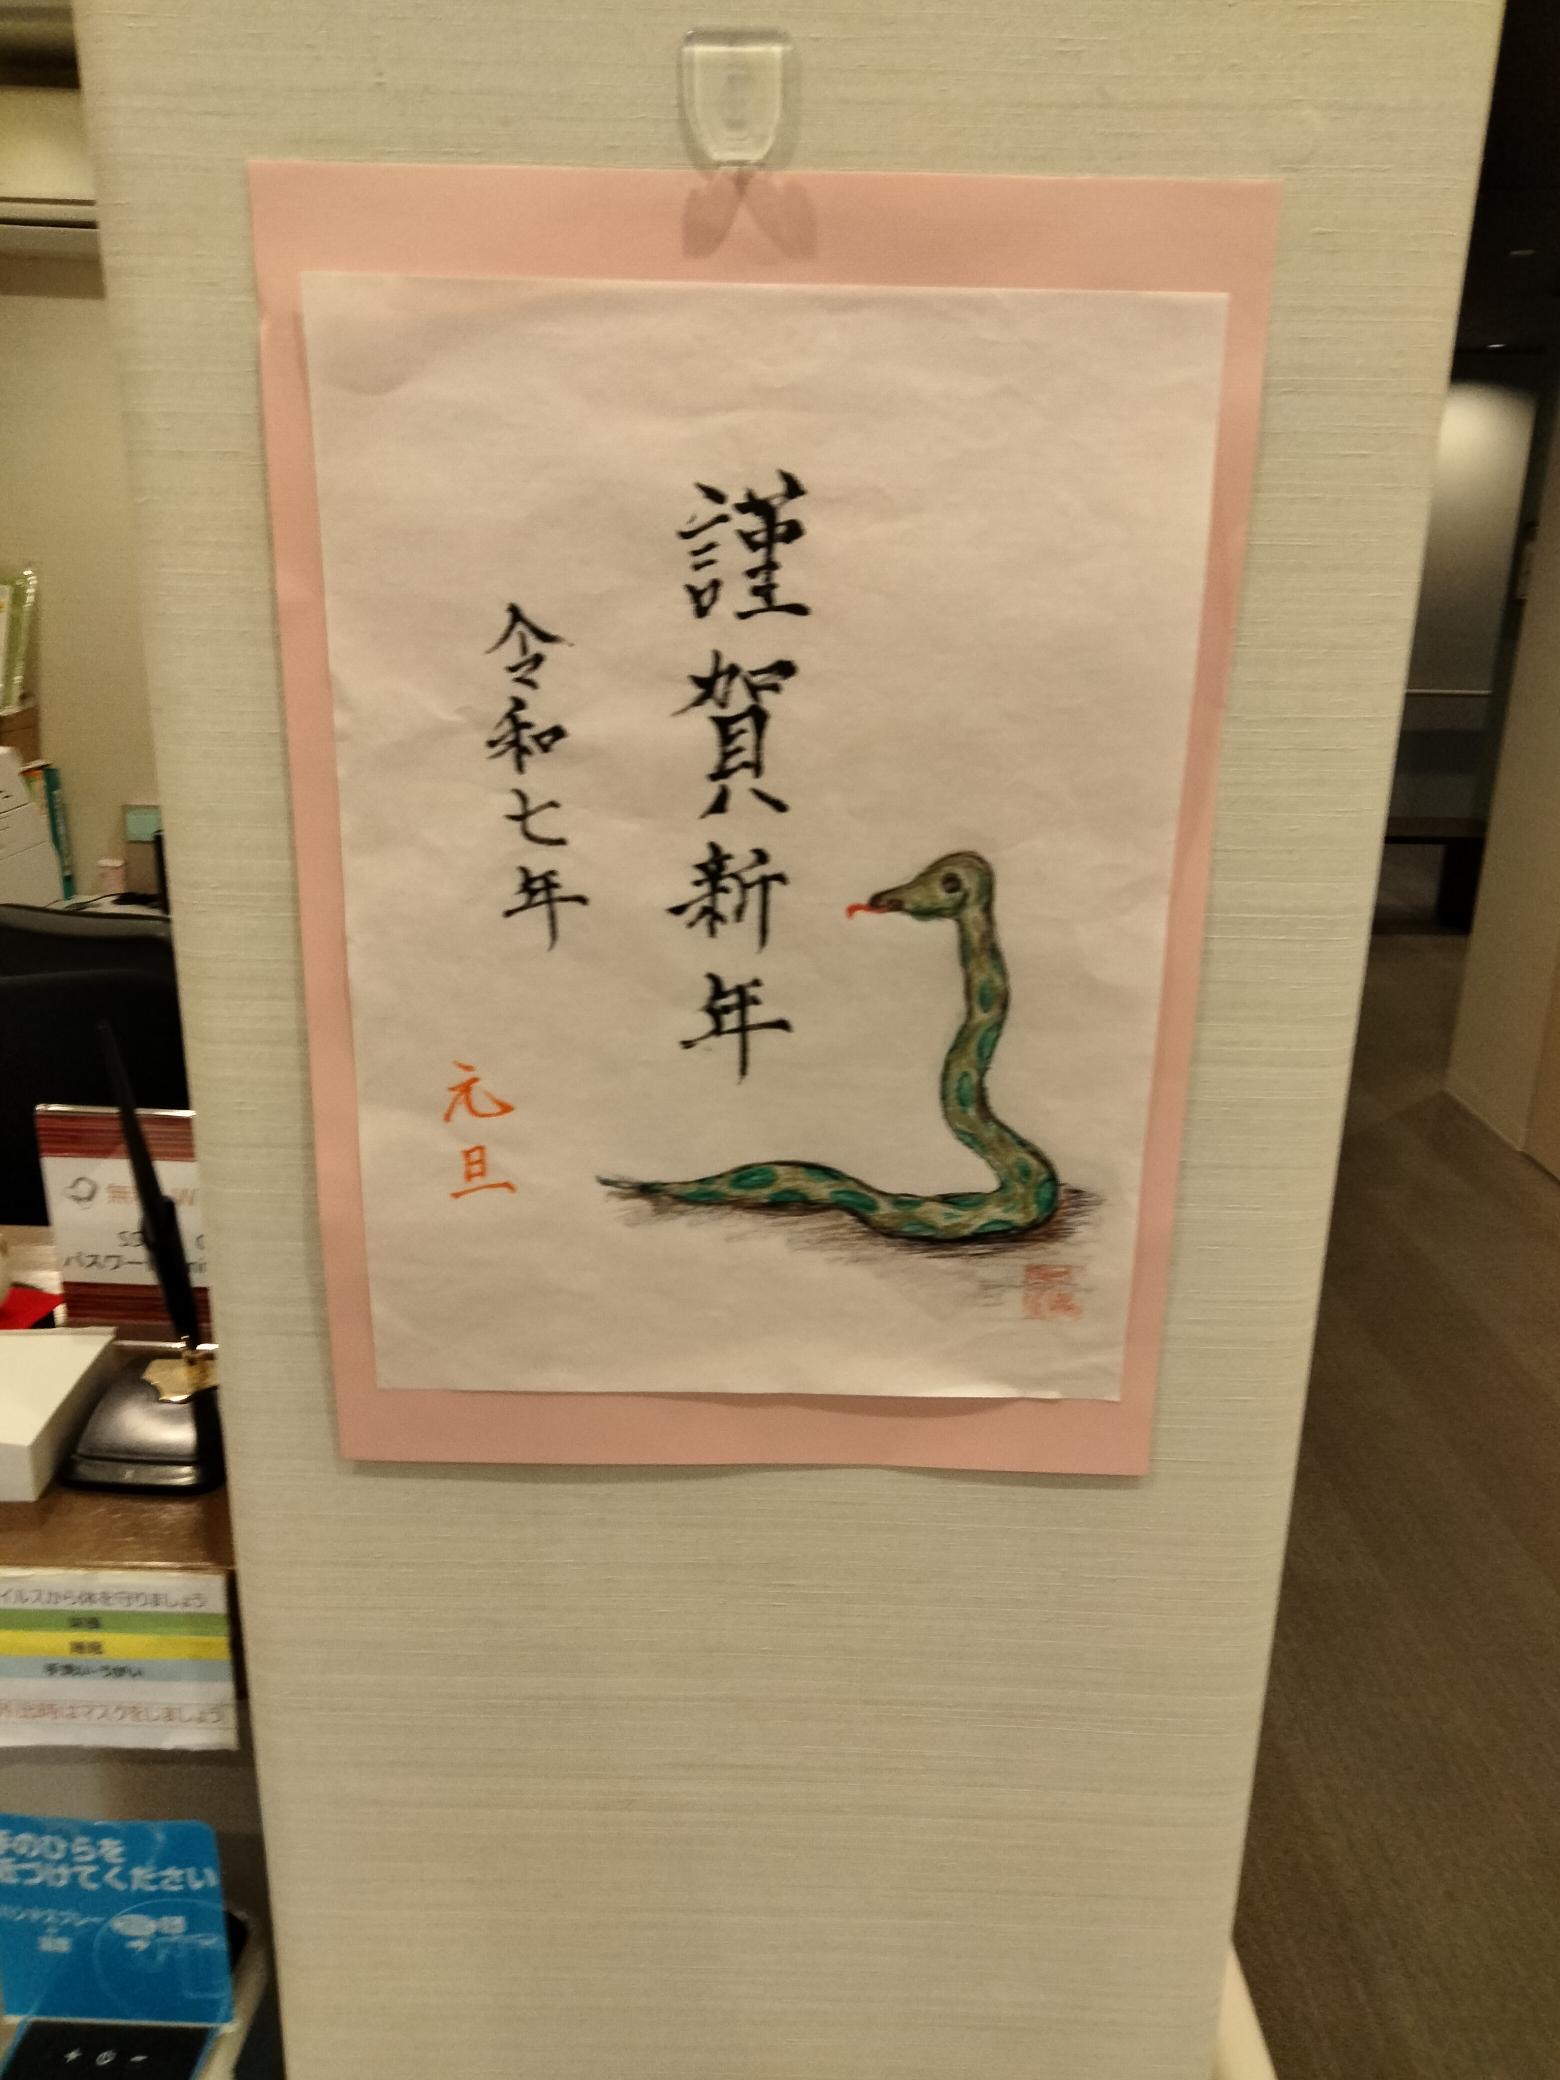 謹賀新年
令和七年
元旦
パスワー
イルスから体を守りましょう
手洗い・うがい
外出時はマスクをしましょう
手のひらを
近づけてください